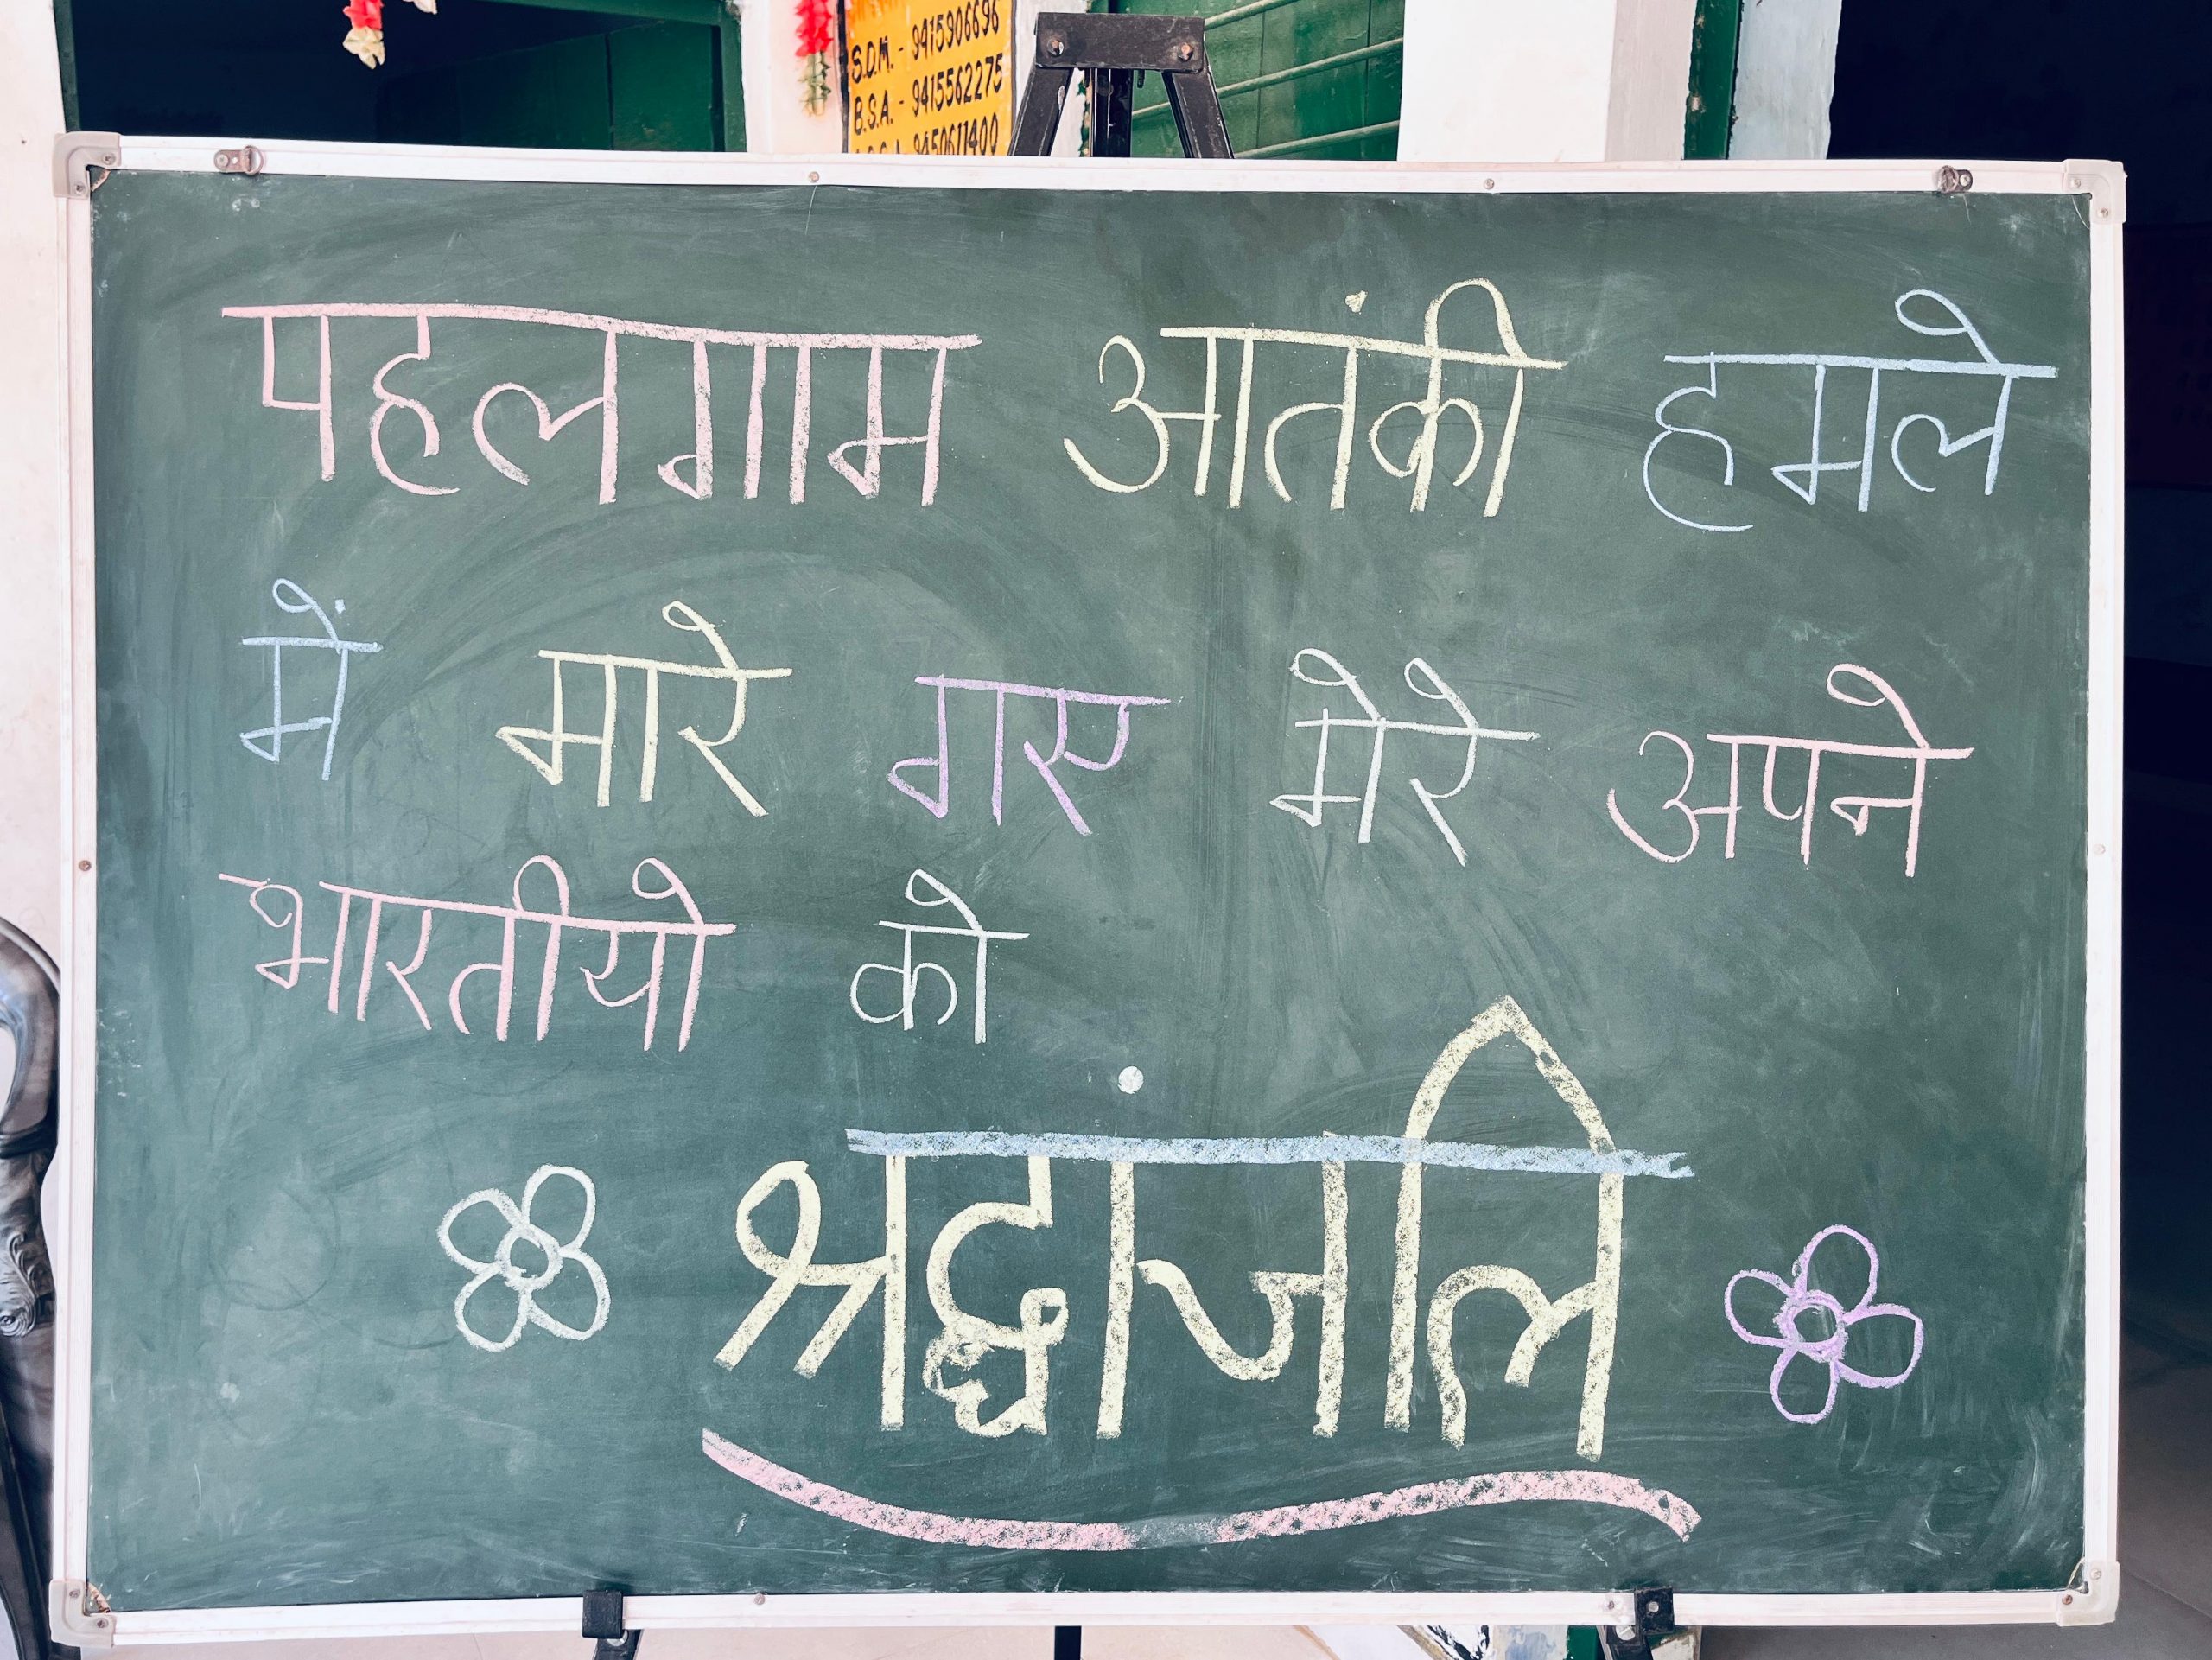 S.D.M. - 9415906696
B.S.A. - 9415562275
9450611400
पहलगाम आतंकी हमले
में मारे गए मेरे अपने
भारतीयो को
श्रद्धांजलि